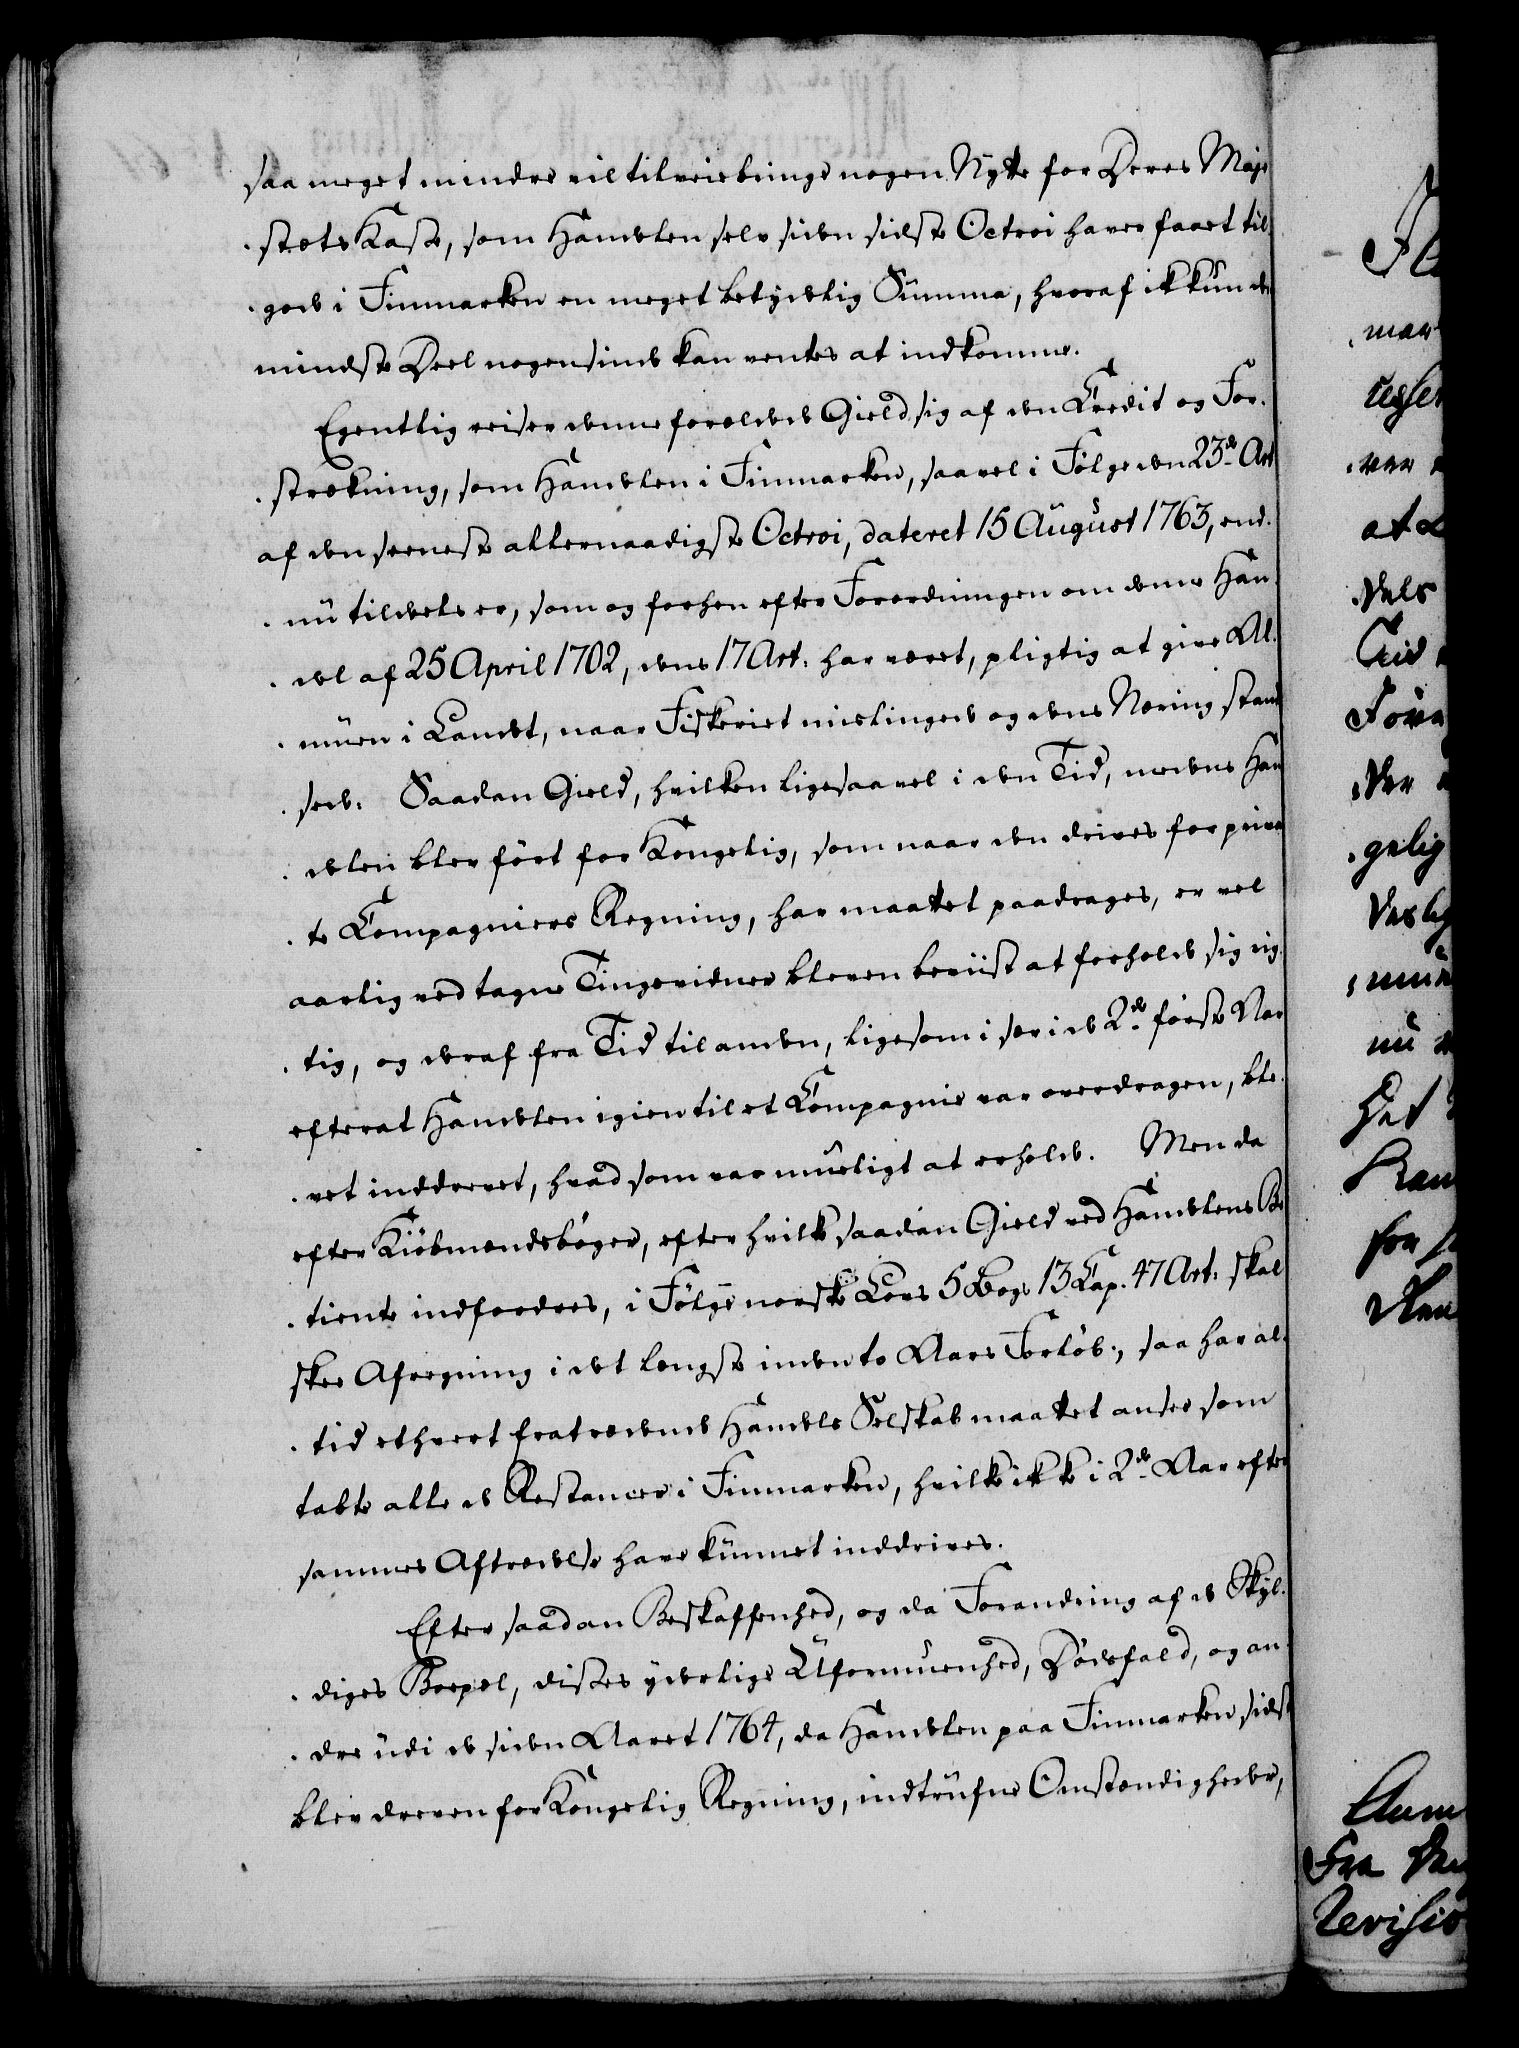 saa meget mindre vil tilveiebringe nogen Nytte for Deres Maje
stæts Kasse, som Handelen selv siden sidste Octroi haver faaet til
gode i Finmarken en meget betydelig Summa, hvoraf ikkun de
mindste Deel nogensinde kan ventes at indkomme.
Egentlig reiser denne forældede Gield sig af den Credit og For-
strækning, som Handelen i Finmarken, saavel i Følge den 23de Art
af den seeneste allernaadigste Octroi, dateret 15 August 1763, end-
nu tildeels er, som og forhen efter Forordningen om denne Han-
del af 25 April 1702, dens 17 Art. har været, pligtig at give Al-
muen i Landet, naar Fiskeriet mislingede og dens Næring stand
sede. Saadan Gield, hvilken ligesaavel i den Tid, medens Han
delen blev ført for Kongelig, som naar den drives for priva
te Compagniers Regning, har maattet paadrages, er vel
aarlig ved tagne Tingsvidner bleven beviist at forholde sig rig-
tig, og deraf fra Tid til anden, ligesom i sær i de 2de første Aar
efterat Handelen igien til et Compagnie var overdragen, ble-
vet inddrevet, hvad som var mueligt at erholde. Men da
efter Kiøbmandsbøger, efter hvilke saadan Gield ved Handelens Be
tiente indfordres, i Følge norske Lovs 5 Bogs 13 Cap. 47 Art. skal
skee Afregning i det længste inden to Aars Forløb; saa har al-
tid ethvert fratrædende Handels Selskab maattet ansee som
tabte alle de Restancer i Finmarken, hvilke ikke i 2de Aar efter
sammes Aftrædelse have kunnet inddrives.
Efter saadan Beskaffenhed, og da Forandring af de Skyl-
diges Boepæl, disses yderlige Uformuenhed, Dødsfald, og an-
dre udi de siden Aaret 1764, da Handelen paa Finmarken sidst
blev dreven for Kongelig Regning, indtrufne Omstændigheder,